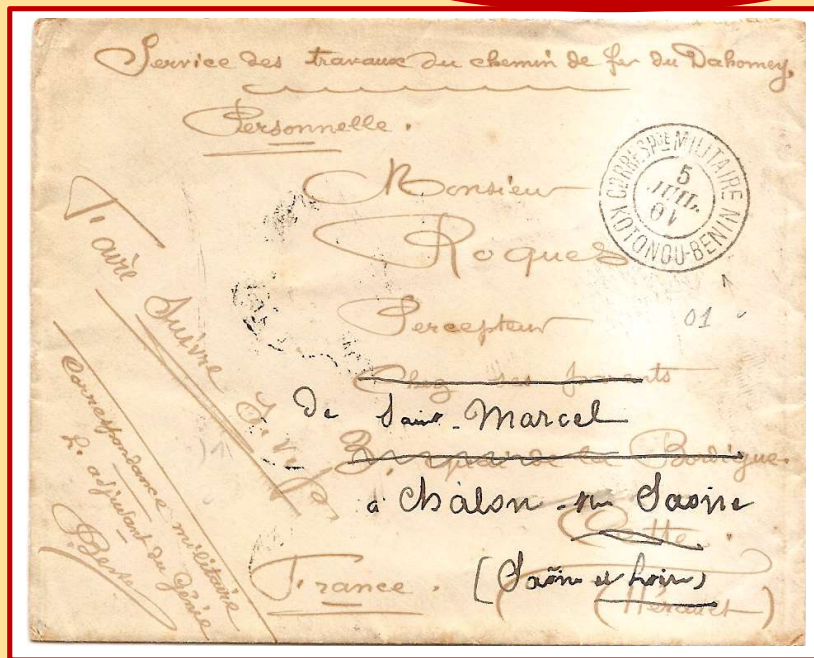 Service des travaux du chemin de fer du Dahomey.
Personnelle.
CORRESP.DCE MILITAIRE
5
JUIL.
01
KOTONOU-BENIN
01
Monsieur
Roques
Percepteur
Chez ses parents
de Saint-Marcel
de la Bordigue.
à Châlon-sur Saône
Cette.
(Saône et Loire)
(Hérault)
France.
Faire Suivre S.V.P.
Correspondance militaire
L'adjudant du Génie